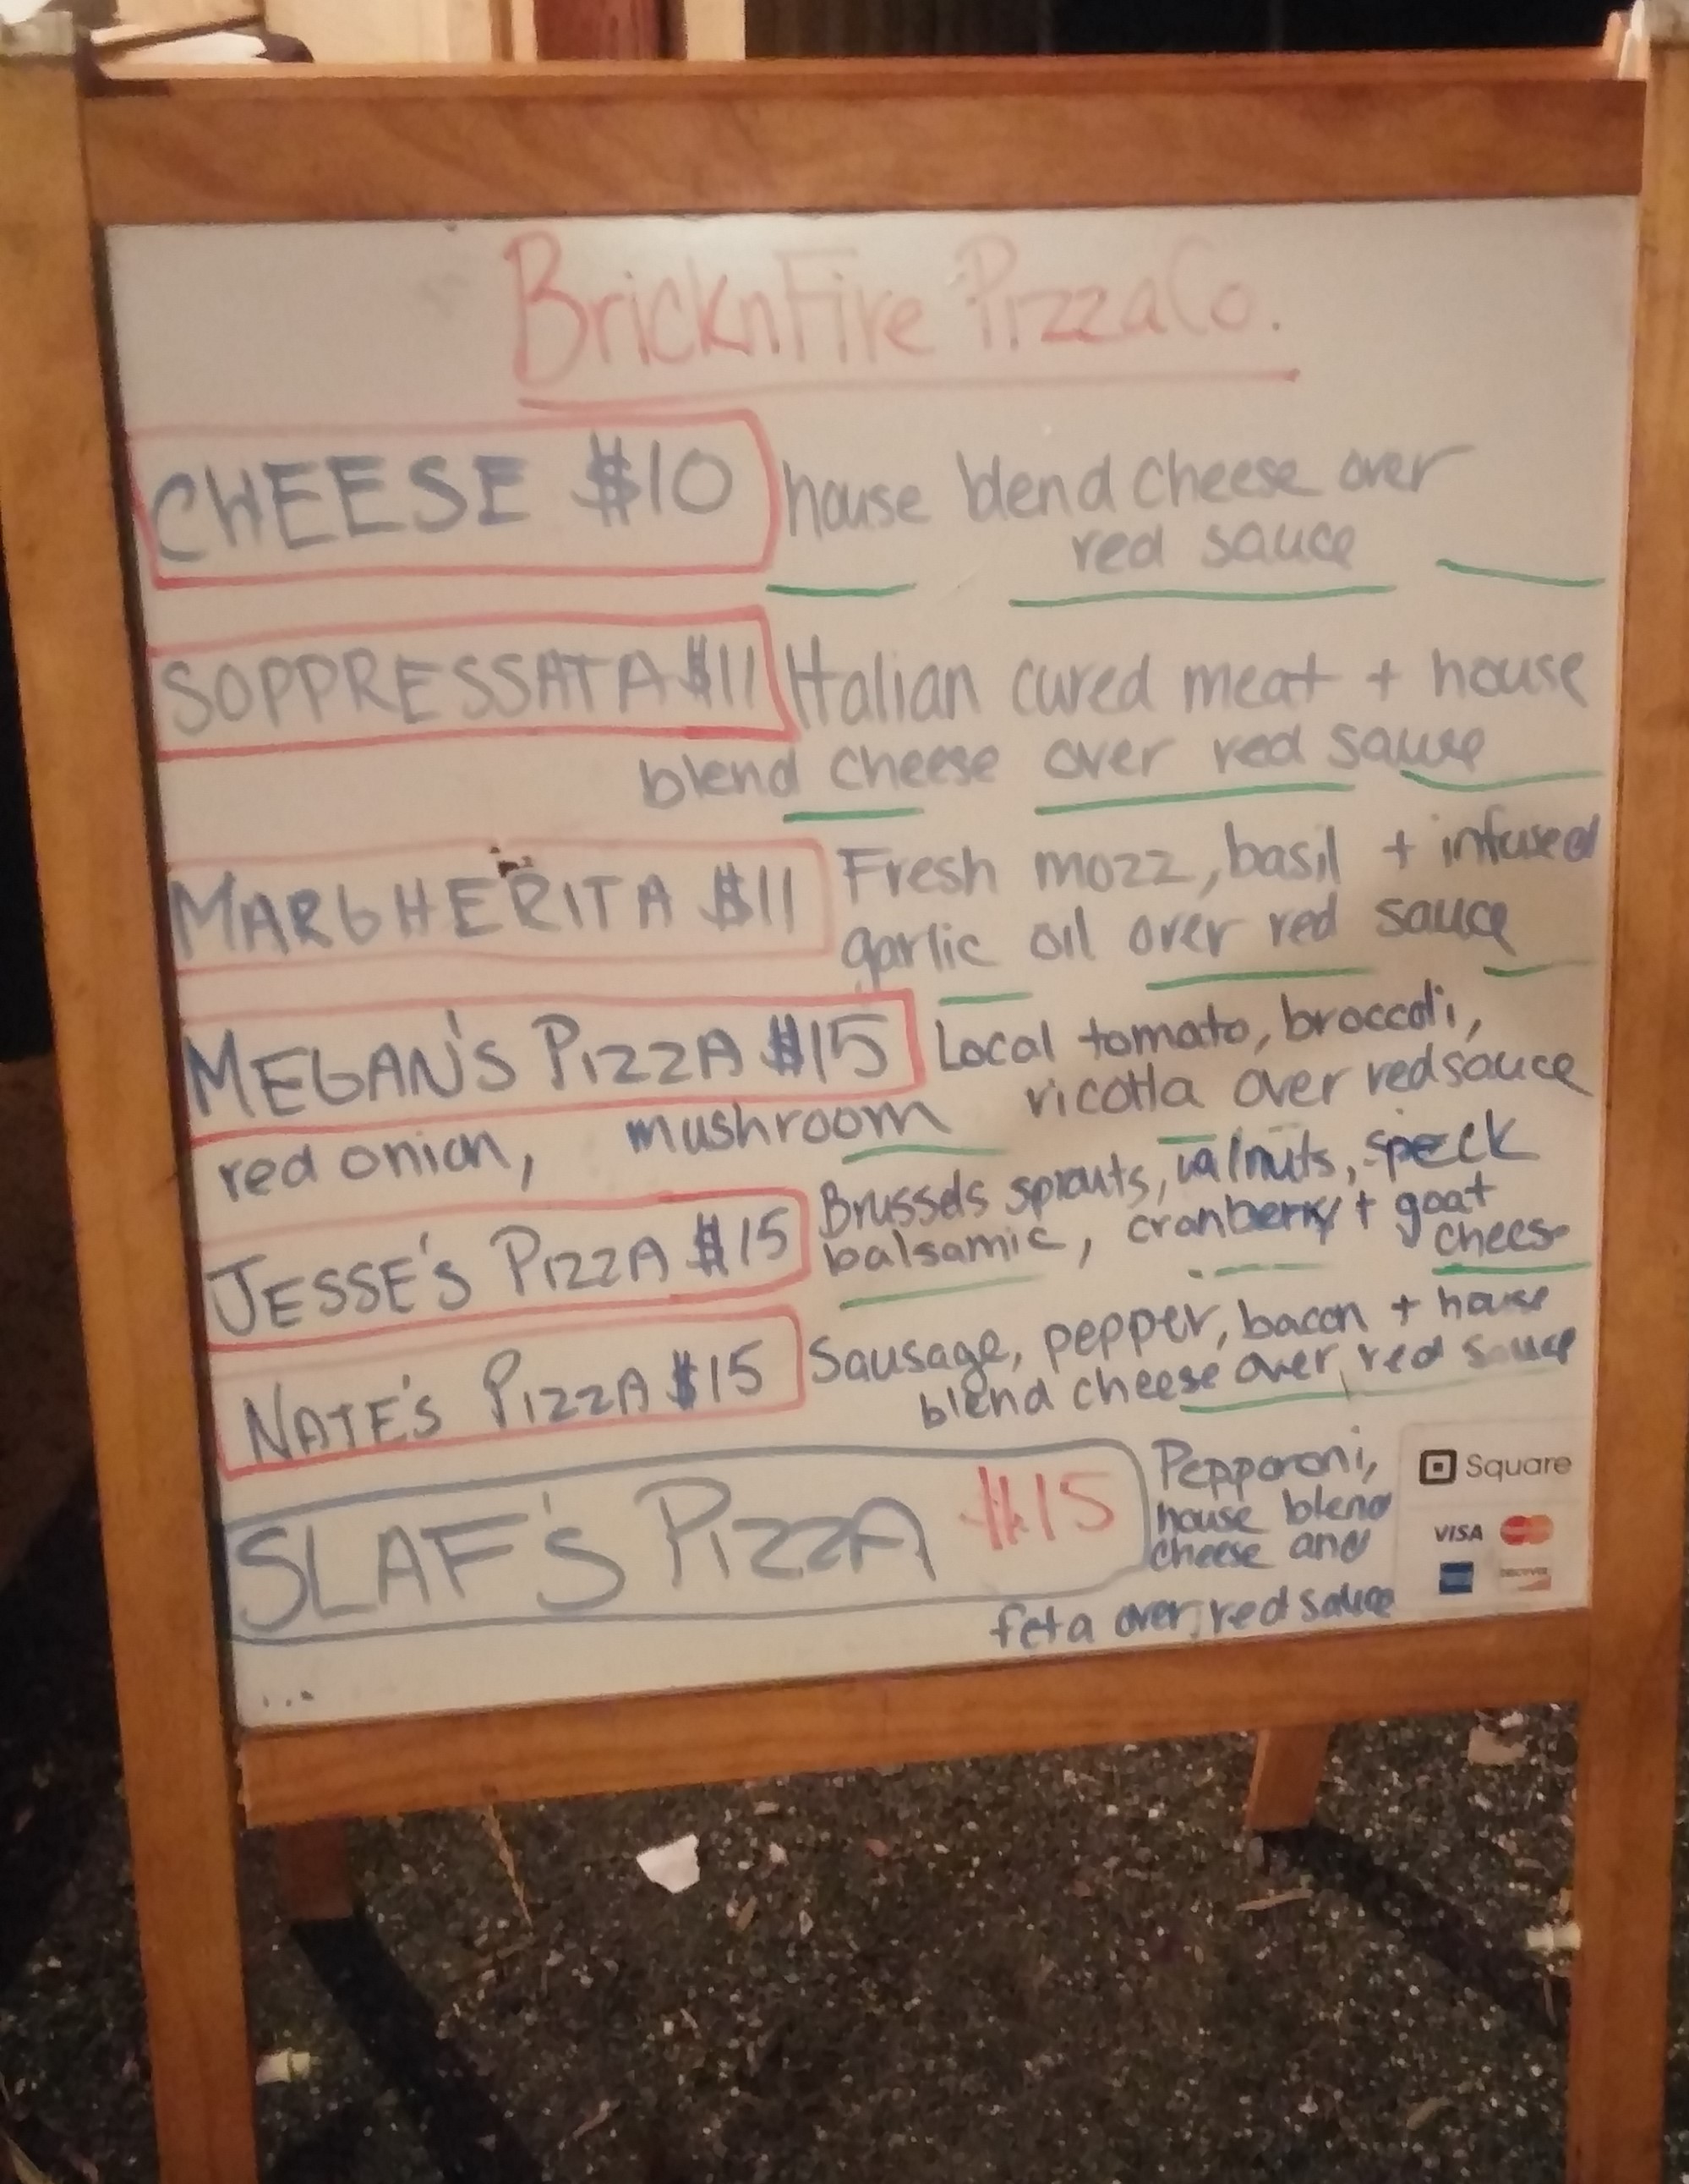 BricknFire Pizza Co.
CHEESE $10 house blend cheese over
red sauce
SOPPRESSATA $11 Italian cured meat + house
blend cheese over red sauce
MARGHERITA $11 Fresh mozz, basil + infused
garlic oil over red sauce
MEGAN'S PIZZA $15 Local tomato, broccoli,
red onion, mushroom ricotta over red sauce
JESSE'S PIZZA $15 Brussels sprouts, walnuts, speck
balsamic, cranberry + goat
cheese
NATE'S PIZZA $15 Sausage, pepper, bacon + house
blend cheese over red sauce
SLAF'S PIZZA $15 Pepparoni,
house blend
cheese and
feta over red sauce
Square
VISA
DISCOVER